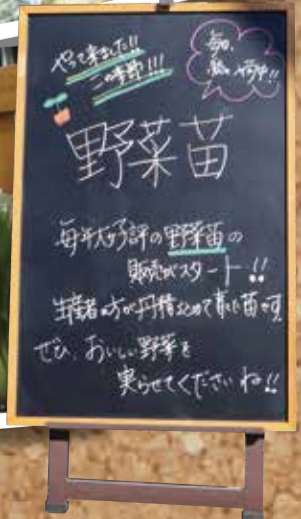 やって来ました!!
この季節!!!
毎日、
野菜苗
毎年大好評の野菜苗の
販売がスタート!!
生産者の方が丹精込めて育た苗です
ぜひ、おいしい野菜を
実らせてくださいね!!